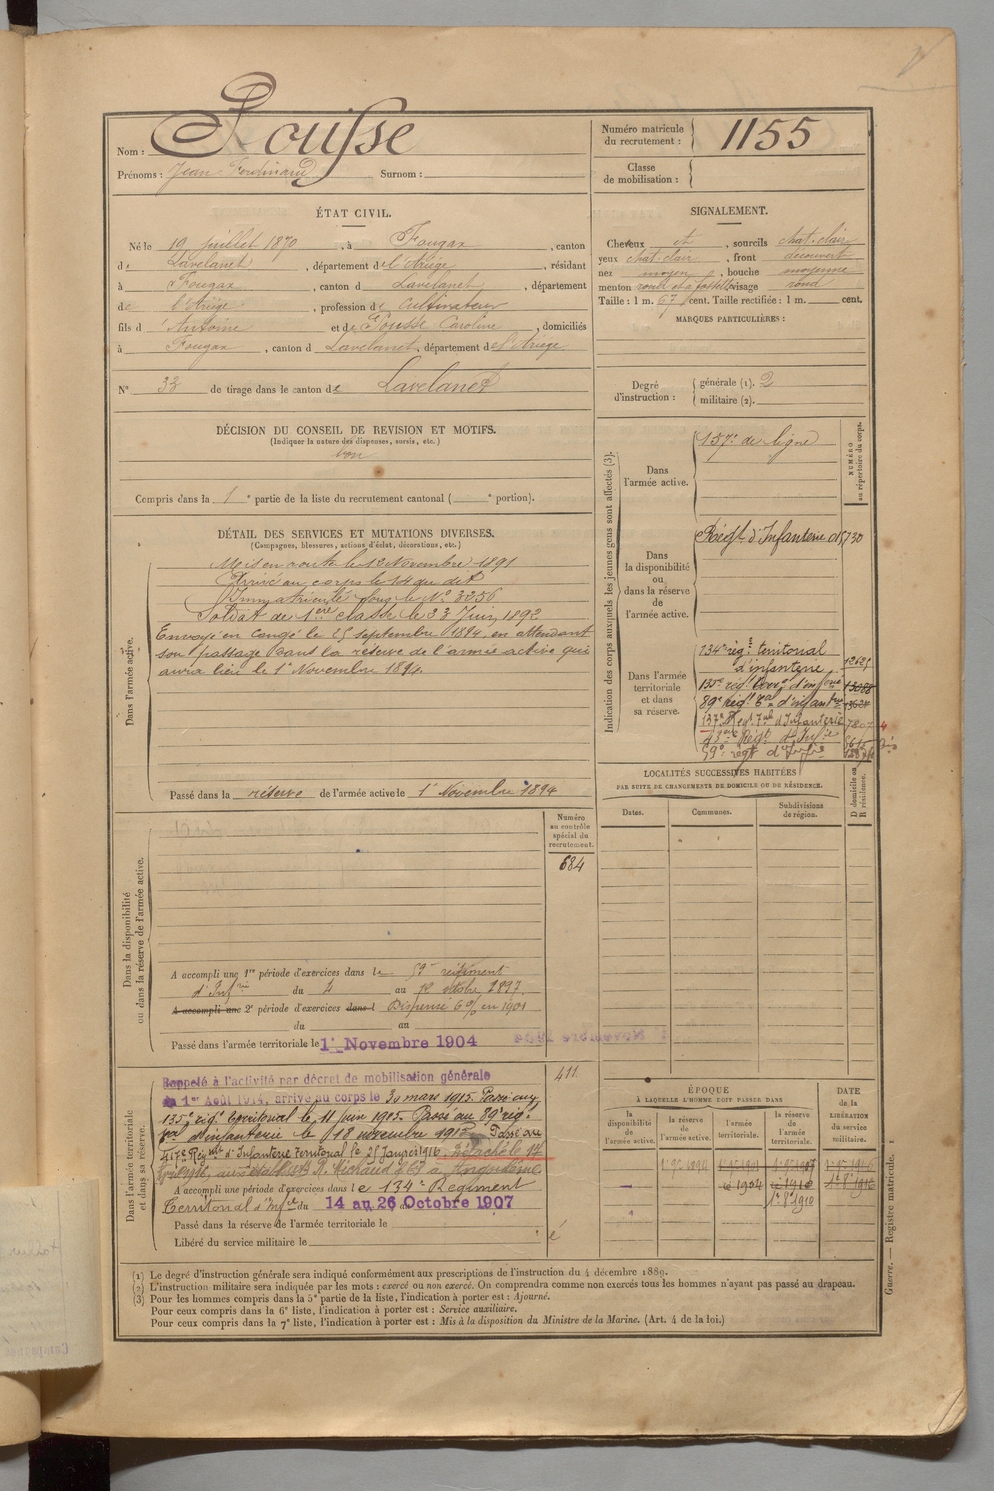 Nom : Pousse
Prénoms : Jean Ferdinand Surnom :
Numéro matricule du recrutement : 1155
Classe de mobilisation :
ÉTAT CIVIL.
Né le 19 juillet 1870, à Fougax, canton
de Lavelanet, département de l'Ariège, résidant
à Fougax, canton d Lavelanet, département
de l'Ariège, profession de cultivateur
fils d'Antoine et de Pousse Caroline, domiciliés
à Fougax, canton d Lavelanet, département de l'Ariège
N° 33 de tirage dans le canton de Lavelanet
SIGNALEMENT.
Cheveux et, sourcils chat. clair
yeux chat. clair, front découvert
nez moyen, bouche moyenne
menton rond et à fossette visage rond
Taille : 1 m. 67 cent. Taille rectifiée : 1 m. cent.
MARQUES PARTICULIÈRES :
Degré d'instruction : générale (1). 2
militaire (2).
DÉCISION DU CONSEIL DE REVISION ET MOTIFS.
(Indiquer la nature des dispenses, sursis, etc.)
bon
Compris dans la 1e partie de la liste du recrutement cantonal ( e portion).
DÉTAIL DES SERVICES ET MUTATIONS DIVERSES.
(Campagnes, blessures, actions d'éclat, décorations, etc.)
Dans l'armée active.
Mis en route le 12 Novembre 1891
Arrivé au corps le 14 du dit
Immatriculé sous le N° 3256
Soldat de 1ère classe le 33 Juin 1892
Envoyé en congé le 25 septembre 1894, en attendant
son passage dans la réserve de l'armée active qui
aura lieu le 1er Novembre 1894.
Passé dans la réserve de l'armée active le 1er Novembre 1894
Indication des corps auxquels les jeunes gens sont affectés (3).
NUMÉRO au répertoire du corps.
Dans l'armée active.
157e de ligne
Dans la disponibilité ou dans la réserve de l'armée active.
Régt d'Infanterie
Dans l'armée territoriale et dans sa réserve.
134e régt territorial
d'infanterie
135e régt terr. d'infrie
89e régt tal d'infanterie
137e Régt Tal d'Infanterie
59e régt d'Infie
LOCALITÉS SUCCESSIVES HABITÉES
PAR SUITE DE CHANGEMENTS DE DOMICILE OU DE RÉSIDENCE.
Dates. Communes. Subdivisions de région. D domicile ou R résidence.
Dans la disponibilité ou dans la réserve de l'armée active.
Numéro au contrôle spécial du recrutement.
684
A accompli une 1re période d'exercices dans le 59e régiment
d'Infrie du 4 au octobre 1897
A accompli une 2e période d'exercices dans l Dispensé en 1901
du au
Passé dans l'armée territoriale le 1er Novembre 1904
Dans l'armée territoriale et dans sa réserve.
411
Rappelé à l'activité par décret de mobilisation générale
du 1er Août 1914, arrivé au corps le 30 mars 1915. Passé au
135e rég. territorial le 11 Juin 1915. Passé au 89e rég.
tal d'infanterie le 18 novembre 1915. Passé au
Régt d'Infanterie territorial le 25 Janvier 1916. Détaché le 14
à Angoulême
A accompli une période d'exercices dans le 134e Régiment
Territorial d'Infie du 14 au 26 Octobre 1907
Passé dans la réserve de l'armée territoriale le
Libéré du service militaire le
ÉPOQUE
À LAQUELLE L'HOMME DOIT PASSER DANS
la disponibilité de l'armée active.
la réserve de l'armée active.
l'armée territoriale.
la réserve de l'armée territoriale.
DATE de la LIBÉRATION du service militaire.
1er 9e 1894
1904
(1) Le degré d'instruction générale sera indiqué conformément aux prescriptions de l'instruction du 4 décembre 1889.
(2) L'instruction militaire sera indiquée par les mots : exercé ou non exercé. On comprendra comme non exercés tous les hommes n'ayant pas passé au drapeau.
(3) Pour les hommes compris dans la 5e partie de la liste, l'indication à porter est : Ajourné.
Pour ceux compris dans la 6e liste, l'indication à porter est : Service auxiliaire.
Pour ceux compris dans la 7e liste, l'indication à porter est : Mis à la disposition du Ministre de la Marine. (Art. 4 de la loi.)
Guerre. — Registre matricule. 1